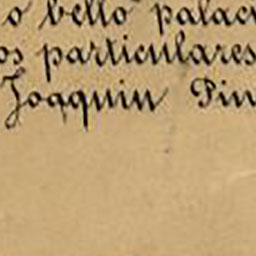 o bello palac
os particulares
Joaquin Pin